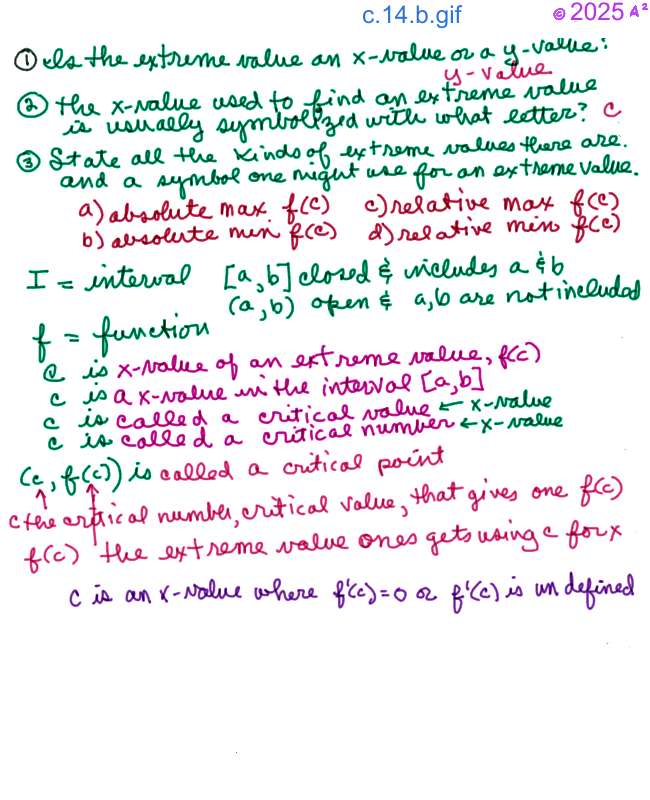 c.14.b.gif © 2025 A²
① Is the extreme value an x-value or a y-value:
y-value
② the x-value used to find an extreme value
is usually symbolized with what letter? c
③ State all the kinds of extreme values there are.
and a symbol one might use for an extreme value.
a) absolute max. f(c) c) relative max f(c)
b) absolute min f(c) d) relative min f(c)
I = interval [a,b] closed & includes a & b
(a,b) open & a,b are not included
f = function
c is x-value of an extreme value, f(c)
c is a x-value in the interval [a,b]
c is called a critical value ← x-value
c is called a critical number ← x-value
(c, f(c)) is called a critical point
c the critical number, critical value, that gives one f(c)
f(c) the extreme value ones gets using c for x
c is an x-value where f'(c)=0 or f'(c) is undefined